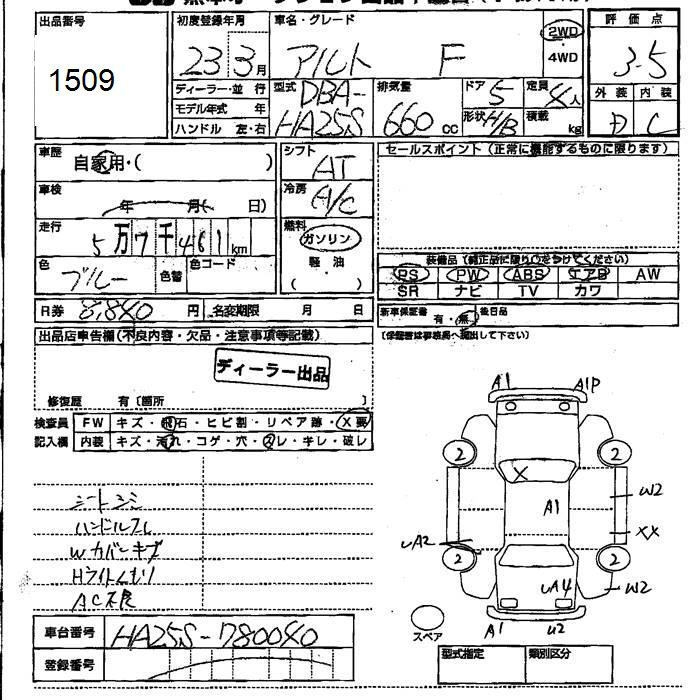 出品番号
1509
初度登録年月
23 3月
車名・グレード
アルト F
2WD
・
4WD
評価点
3.5
ディーラー・並 行
モデル年式 年
ハンドル 左・右
型式
DBA-
HA25S
排気量
660 cc
ドア 5
形状 H/B
定員 4人
積載 kg
外装 内装
D C
車歴
自家用・( )
シフト
AT
セールスポイント(正常に機能するものに限ります)
車検
年 月( 日)
冷房
A/C
走行
5万7千461km
燃料
ガソリン
軽・油
( )
色
ブルー
色替
色コード
装備品(純正品に限り○をつけてください)
PS PW ABS エアB AW
SR ナビ TV カワ
R券 8,840 円 名変期限 月 日
新車保証書 有・無 後日品
(保証書は事務局へ提出して下さい)
出品店申告欄(不良内容・欠品・注意事項等記載)
ディーラー出品
修復歴 有〔箇所 〕
検査員
記入欄
FW キズ・飛石・ヒビ割・リペア跡・X要
内装 キズ・汚れ・コゲ・穴・スレ・キレ・破レ
シートシミ
ハンドルスレ
Wカバーキズ
Hライトくもり
AC不良
A1 A1P
2 2
X
A1
W2
XX
UA2
2 2
UA4
W2
A1 U2
スペア
車台番号 HA25S-780040
登録番号
型式指定 類別区分